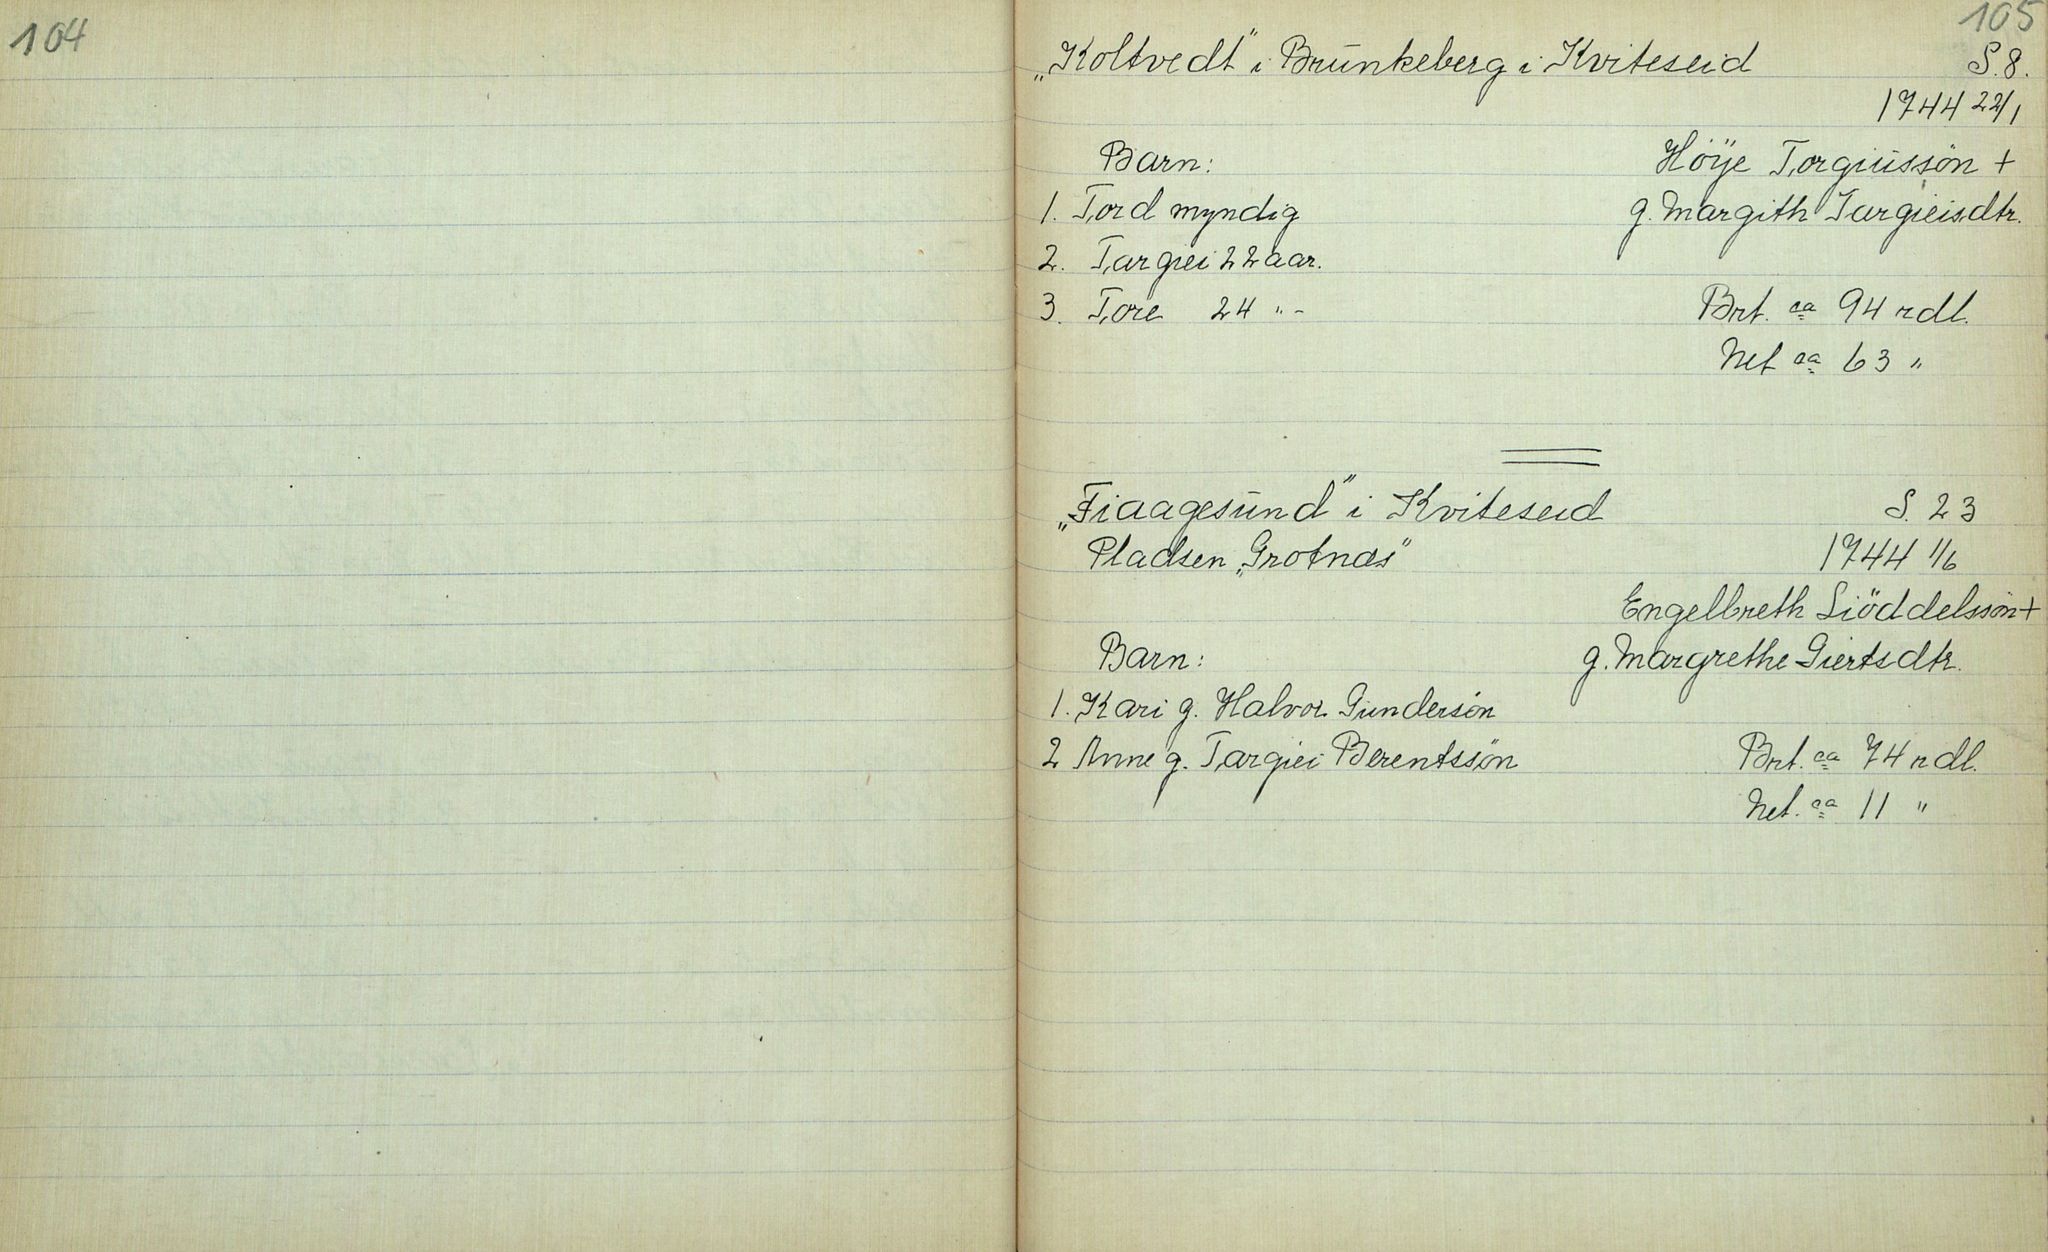 104
105
„Koltvedt" i Brunkeberg i Kviteseid S. 8.
1744 22/1
Barn: Höÿe Torgiussön +
1. Tord myndig g. Margith Targieisdtr.
2. Targiei 22 aar.
3. Tore 24 "- Brt. ca 94 rdl.
Net ca 63 "
„Fiaagesund" i Kviteseid S. 23
Pladsen „Grotnæs" 1744 1/6
Engelbreth Siöddelssön +
Barn: g. Margrethe Giertsdtr.
1. Kari g. Halvor Gundersön
2 Anne g. Targiei Berentssön Brt. ca 74 rdl.
Net. ca 11 "